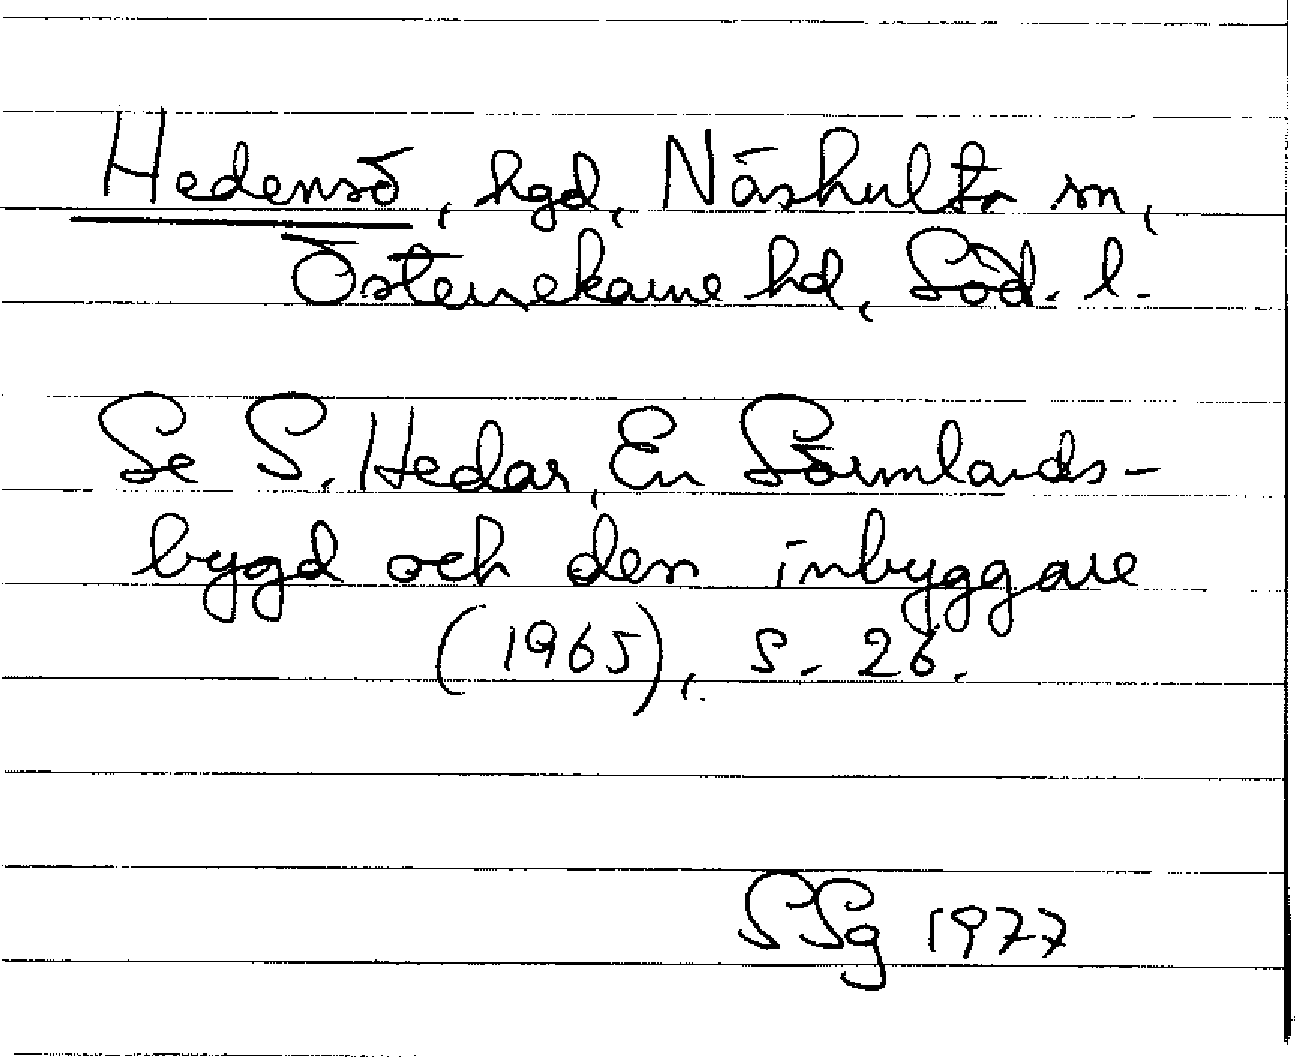 Hedensö, hgd, Näshulta sn,
Österrekarne hd, Söd. l.
Se S. Hedar, En Sörmlands-
bygd och dess inbyggare
(1965), s. 26.
SSg 1977